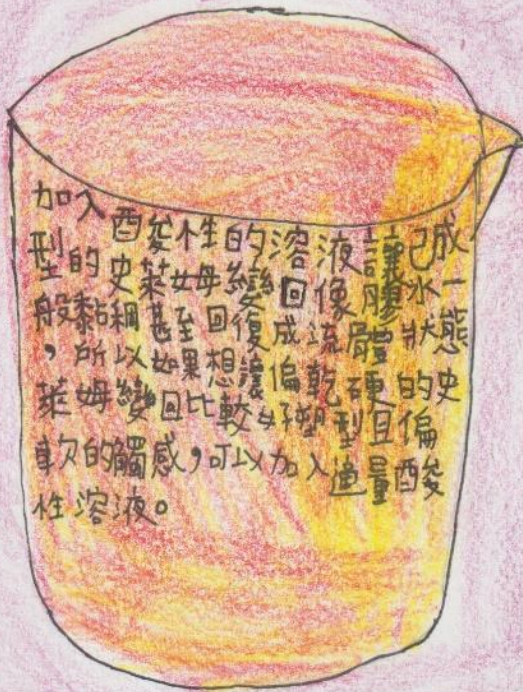 加入酸性的溶液讓已成
型的史萊姆變回像膠水一
般黏稠甚至回復成流體狀態
，所以如果想讓偏乾硬的史
萊姆變回比較好塑型且偏
軟的觸感，可以加入適量酸
性溶液。